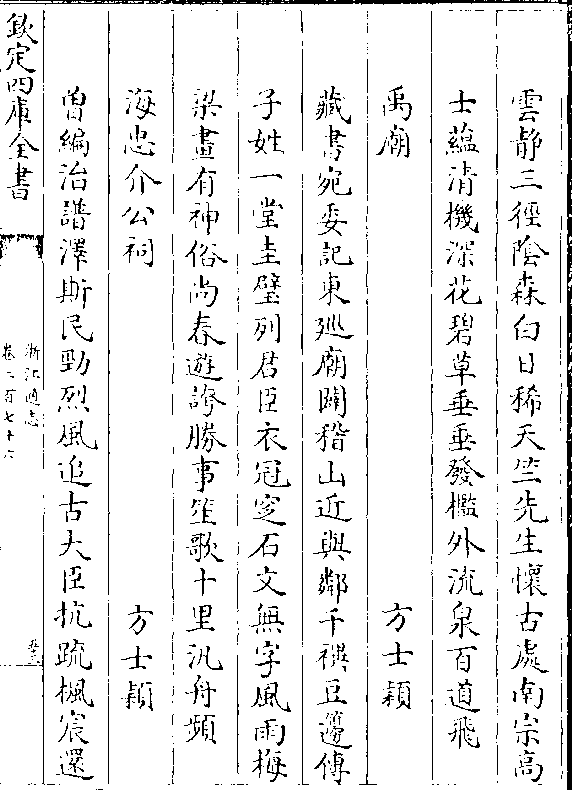 雲靜三徑陰森白日稀天竺先生懷古處南宗高
士蘊清機深花碧草垂垂發檻外流泉百道飛
禹廟　方士穎
藏書宛委記東巡廟闢稽山近與鄰千禩豆籩傳
子姓一堂圭璧列君臣衣冠窆石文無字風雨梅
梁畫有神俗尚春遊誇勝事笙歌十里汎舟頻
海忠介公祠　方士穎
曽編治譜澤斯民勁烈風追古大臣抗疏楓宸還
欽定四庫全書
浙江通志
卷二百七十六